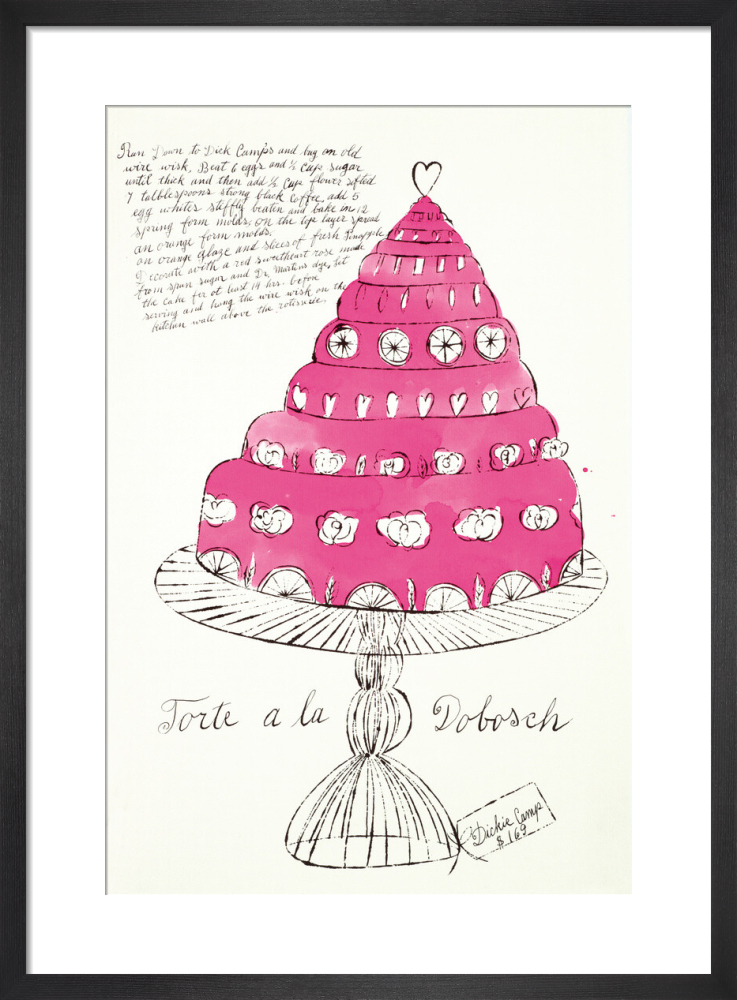 Run Down to Dick Camp's and buy an old
wire wisk, Beat 6 eggs and ½ cup sugar
until thick and then add ½ Cup flower sifted
7 tablbespoons strong black coffee, add 5
egg whites stiffly beaten and bake in 12
spring form molds. on the top layer spread
an orange form molds.
an orange glaze and slices of fresh Pineapple
Decorate with a red sweetheart rose made
from spun sugar and Dr. Martens dye, let
the cake for at least 14 hrs. before
serving and hang the wire wisk on the
kitchen wall above the rotisserie.
Torte a la Dobosch
Dickie Camp
$ 1.69